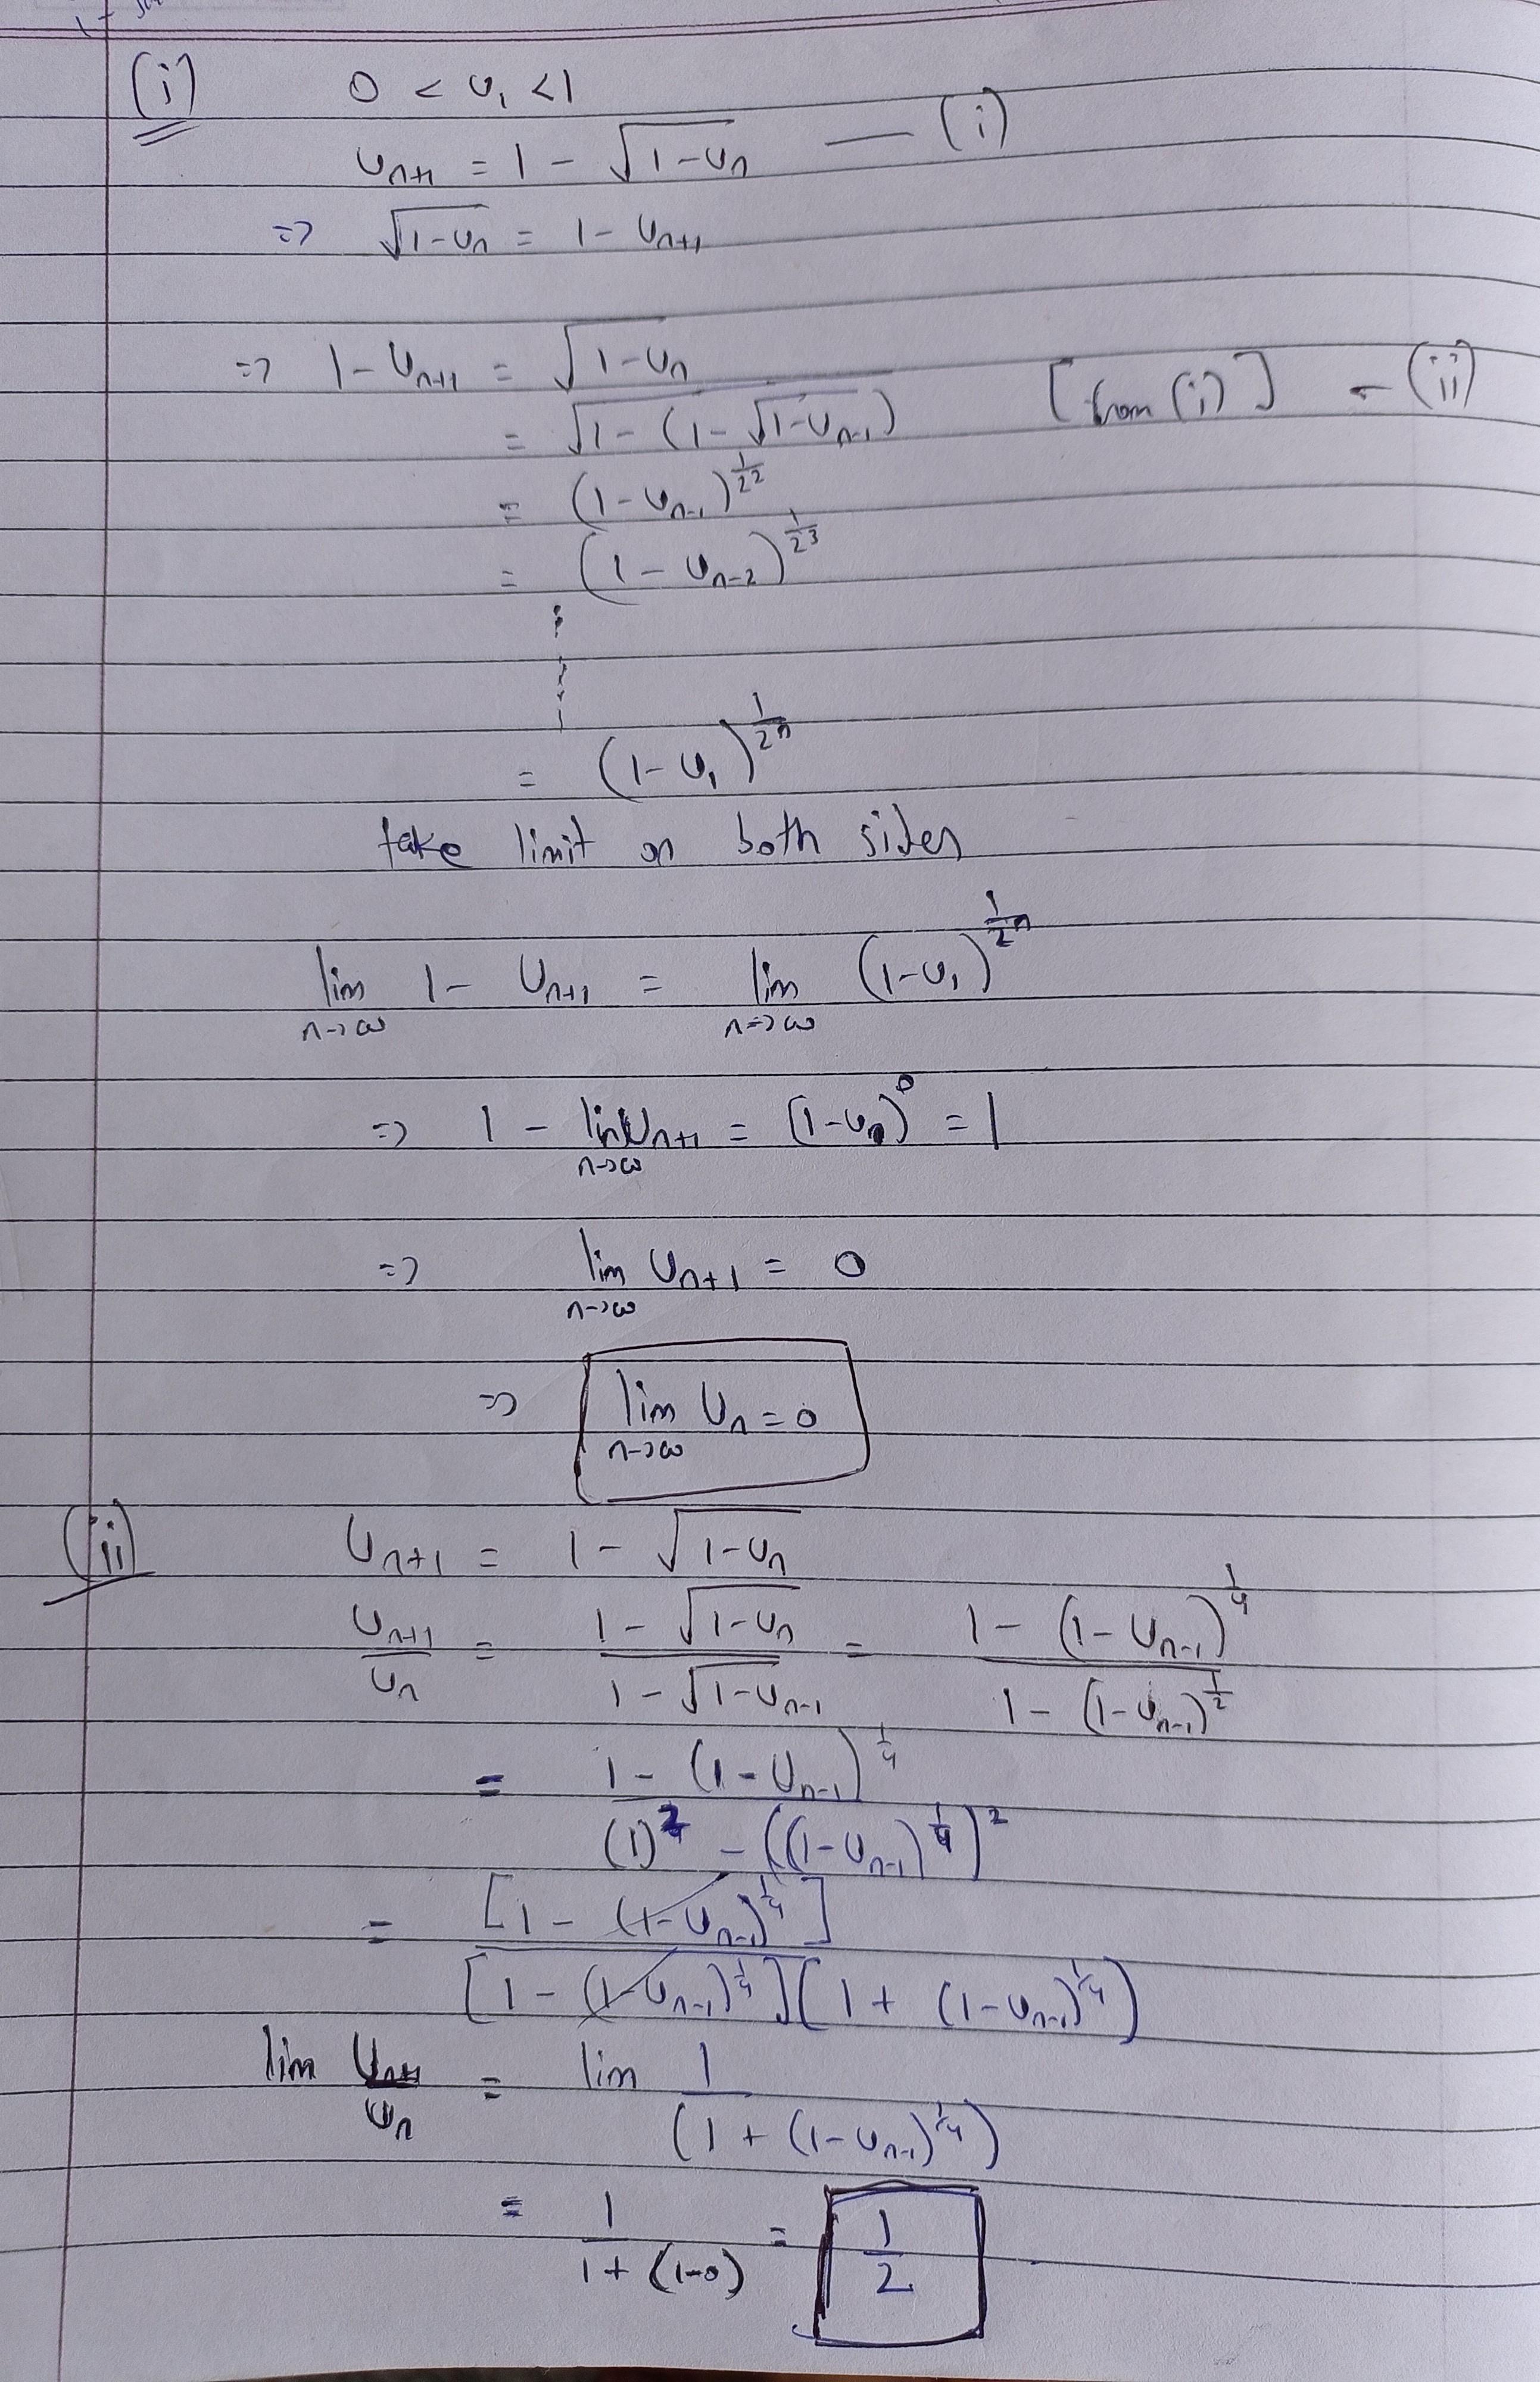 (i) 0 < u₁ < 1
uₙ₊₁ = 1 - √(1-uₙ) — (i)
=> √(1-uₙ) = 1 - uₙ₊₁
=> 1 - uₙ₊₁ = √(1-uₙ)
= √(1 - (1 - √(1-uₙ₋₁))) [from (i)] - (ii)
= (1-uₙ₋₁)^(1/2²)
= (1 - uₙ₋₂)^(1/2³)
= (1-u₁)^(1/2ⁿ)
take limit on both sides
lim n→∞ 1 - uₙ₊₁ = lim n→∞ (1-u₁)^(1/2ⁿ)
=> 1 - lim n→∞ uₙ₊₁ = (1-uₙ)⁰ = 1
=> lim n→∞ uₙ₊₁ = 0
=> lim n→∞ uₙ = 0
(ii) uₙ₊₁ = 1 - √(1-uₙ)
uₙ₊₁/uₙ = (1 - √(1-uₙ))/(1 - √(1-uₙ₋₁)) = (1 - (1-uₙ₋₁)^(1/4))/(1 - (1-uₙ₋₁)^(1/2))
= (1 - (1-uₙ₋₁)^(1/4))/((1)² - ((1-uₙ₋₁)^(1/4))²)
= [1 - (1-uₙ₋₁)^(1/4)]/([1 - (1-uₙ₋₁)^(1/4)][1 + (1-uₙ₋₁)^(1/4))
lim uₙ₊₁/uₙ = lim 1/(1 + (1-uₙ₋₁)^(1/4))
= 1/(1 + (1-0)) = 1/2